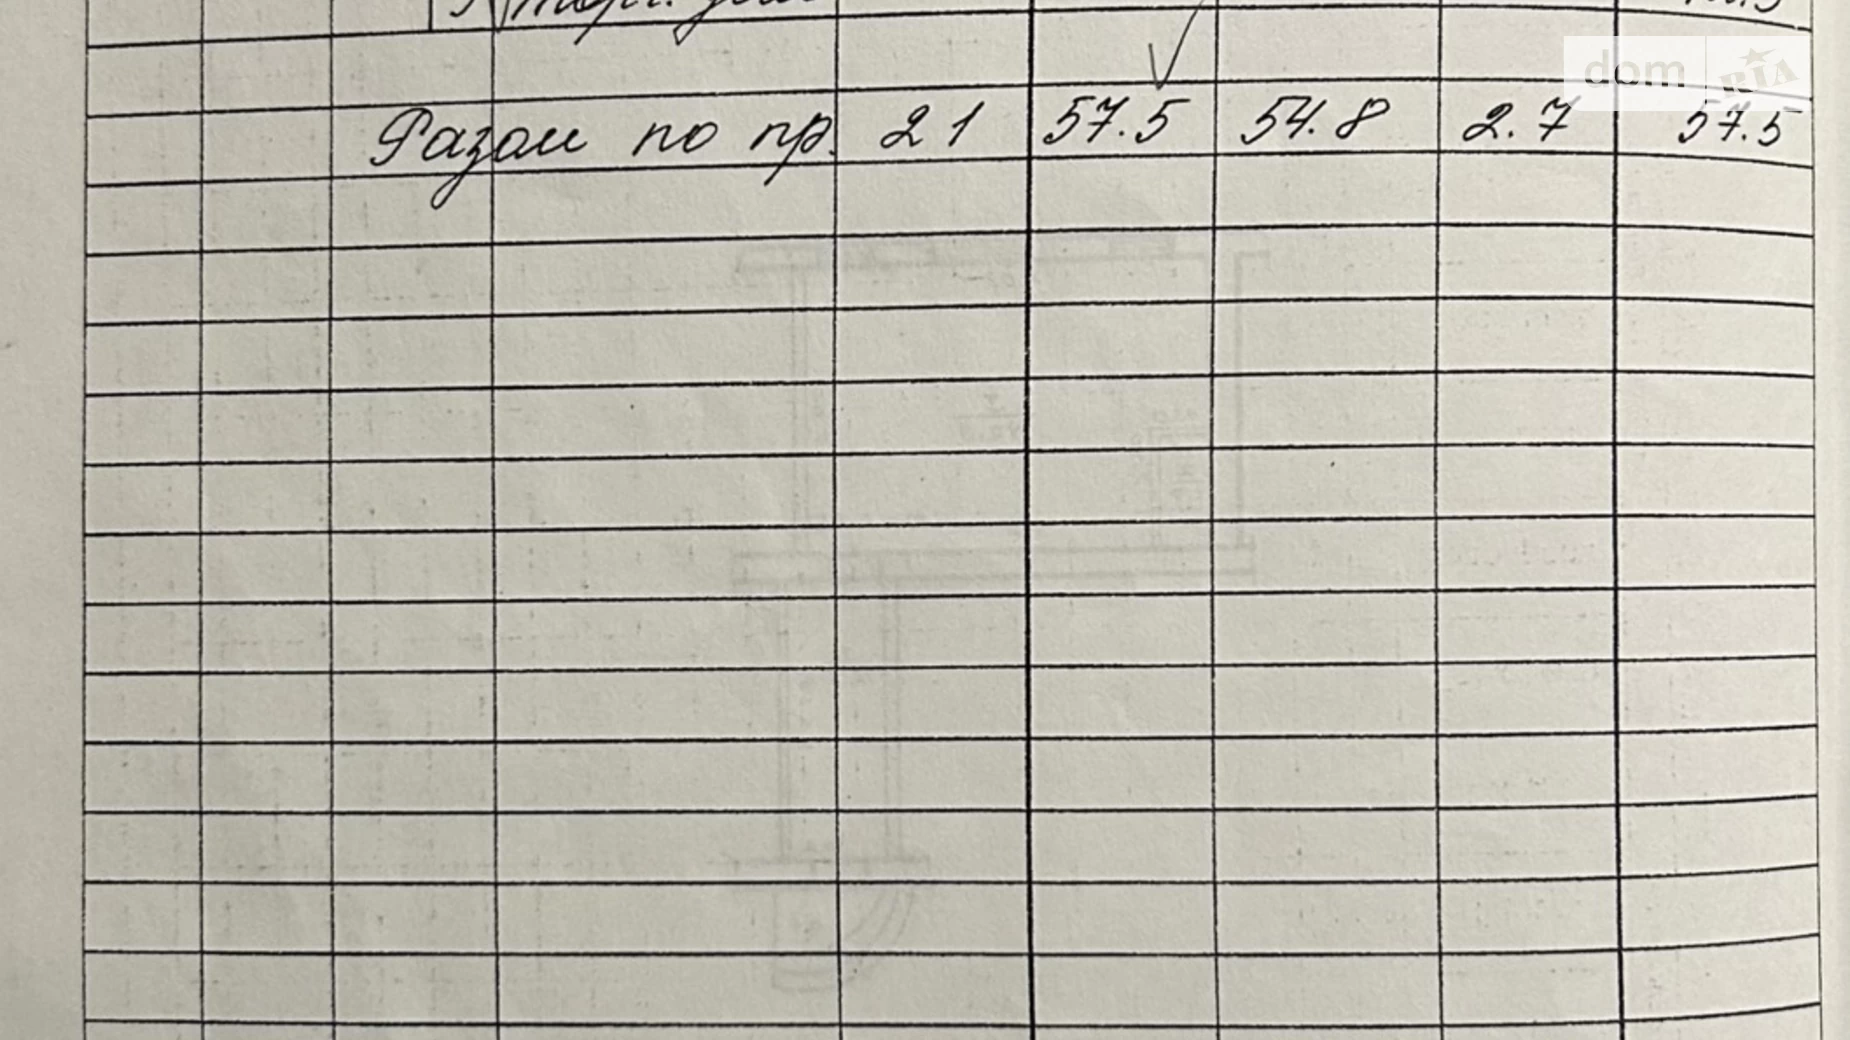 dom RIA
Разом по пр. 21 57.5 54.8 2.7 57.5